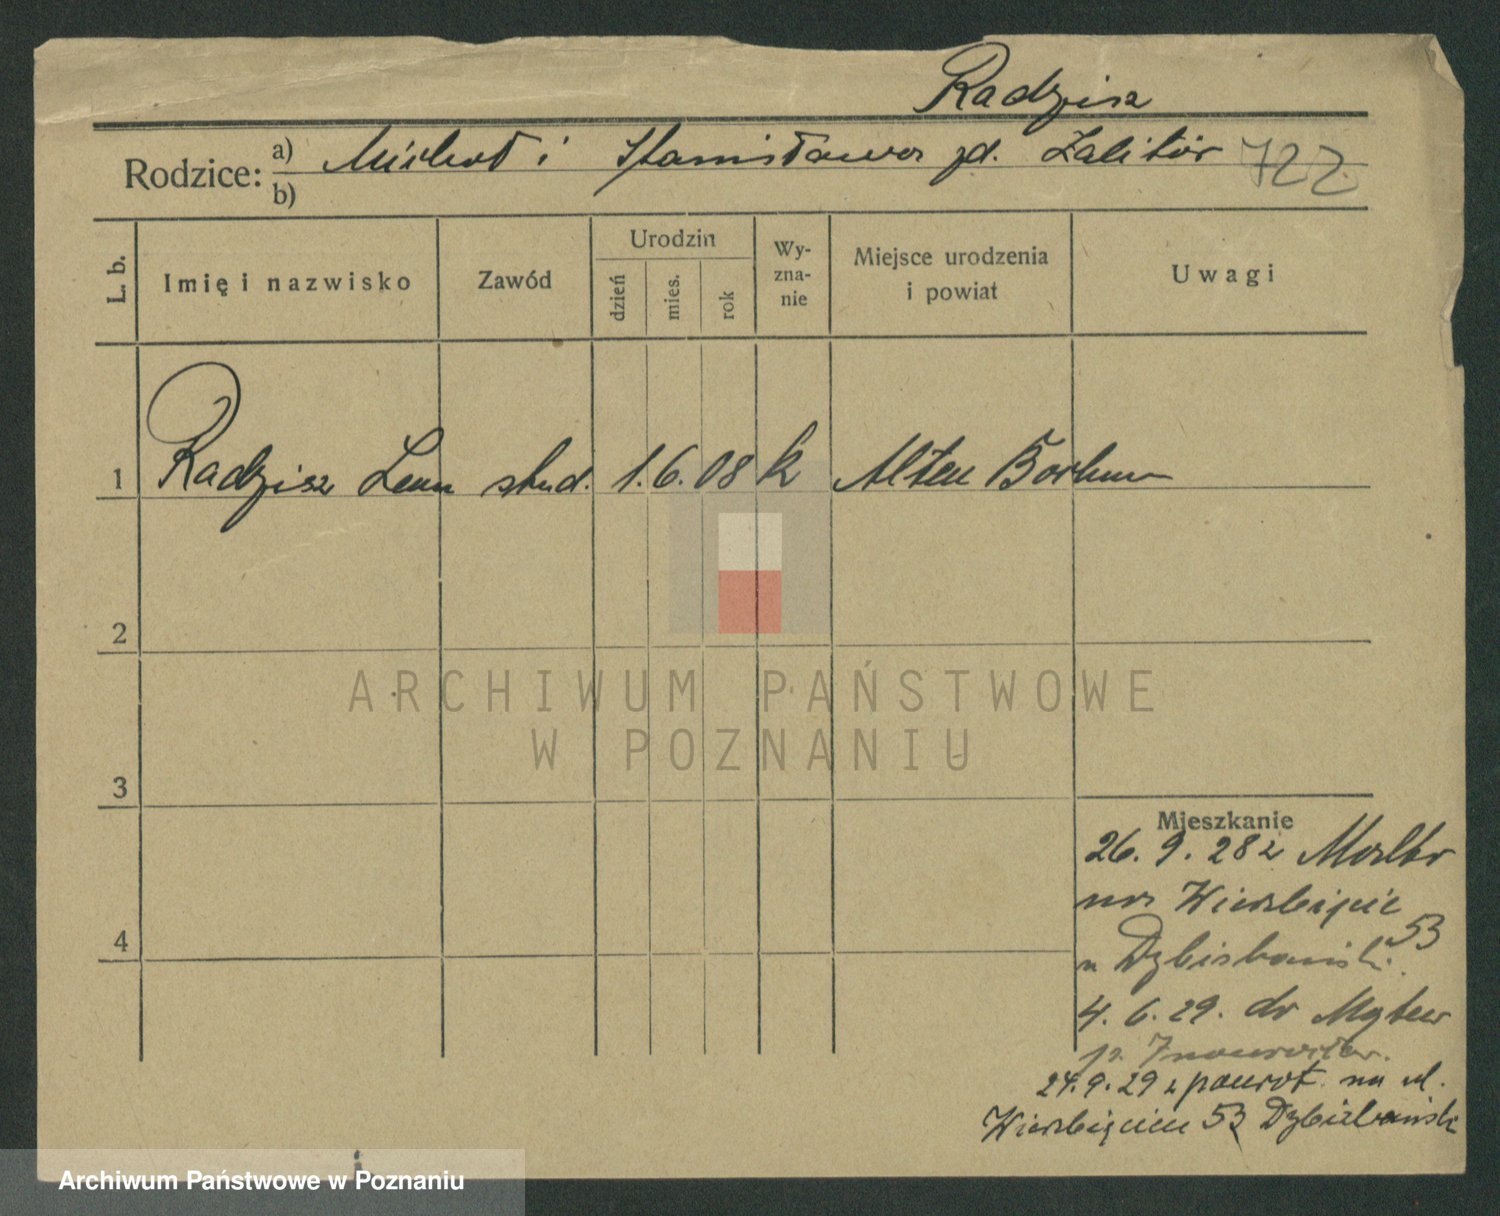 Radzisz
Rodzice: a) Michał i Stanisława zd. Zalitór 722
b)
L. b. Imię i nazwisko Zawód Urodzin dzień mies. rok Wy-zna-nie Miejsce urodzenia i powiat Uwagi
1 Radzisz Leon stud. 1. 6. 08 k Alten Bochum
2
ARCHIWUM PAŃSTWOWE
W POZNANIU
3
Mieszkanie
26. 9. 28 z
4
na Wierzbięcic 53
u
4. 6. 29. do Mątew
p.
24. 9. 29 z powrot. na ul.
Wierzbięcice 53
Archiwum Państwowe w Poznaniu